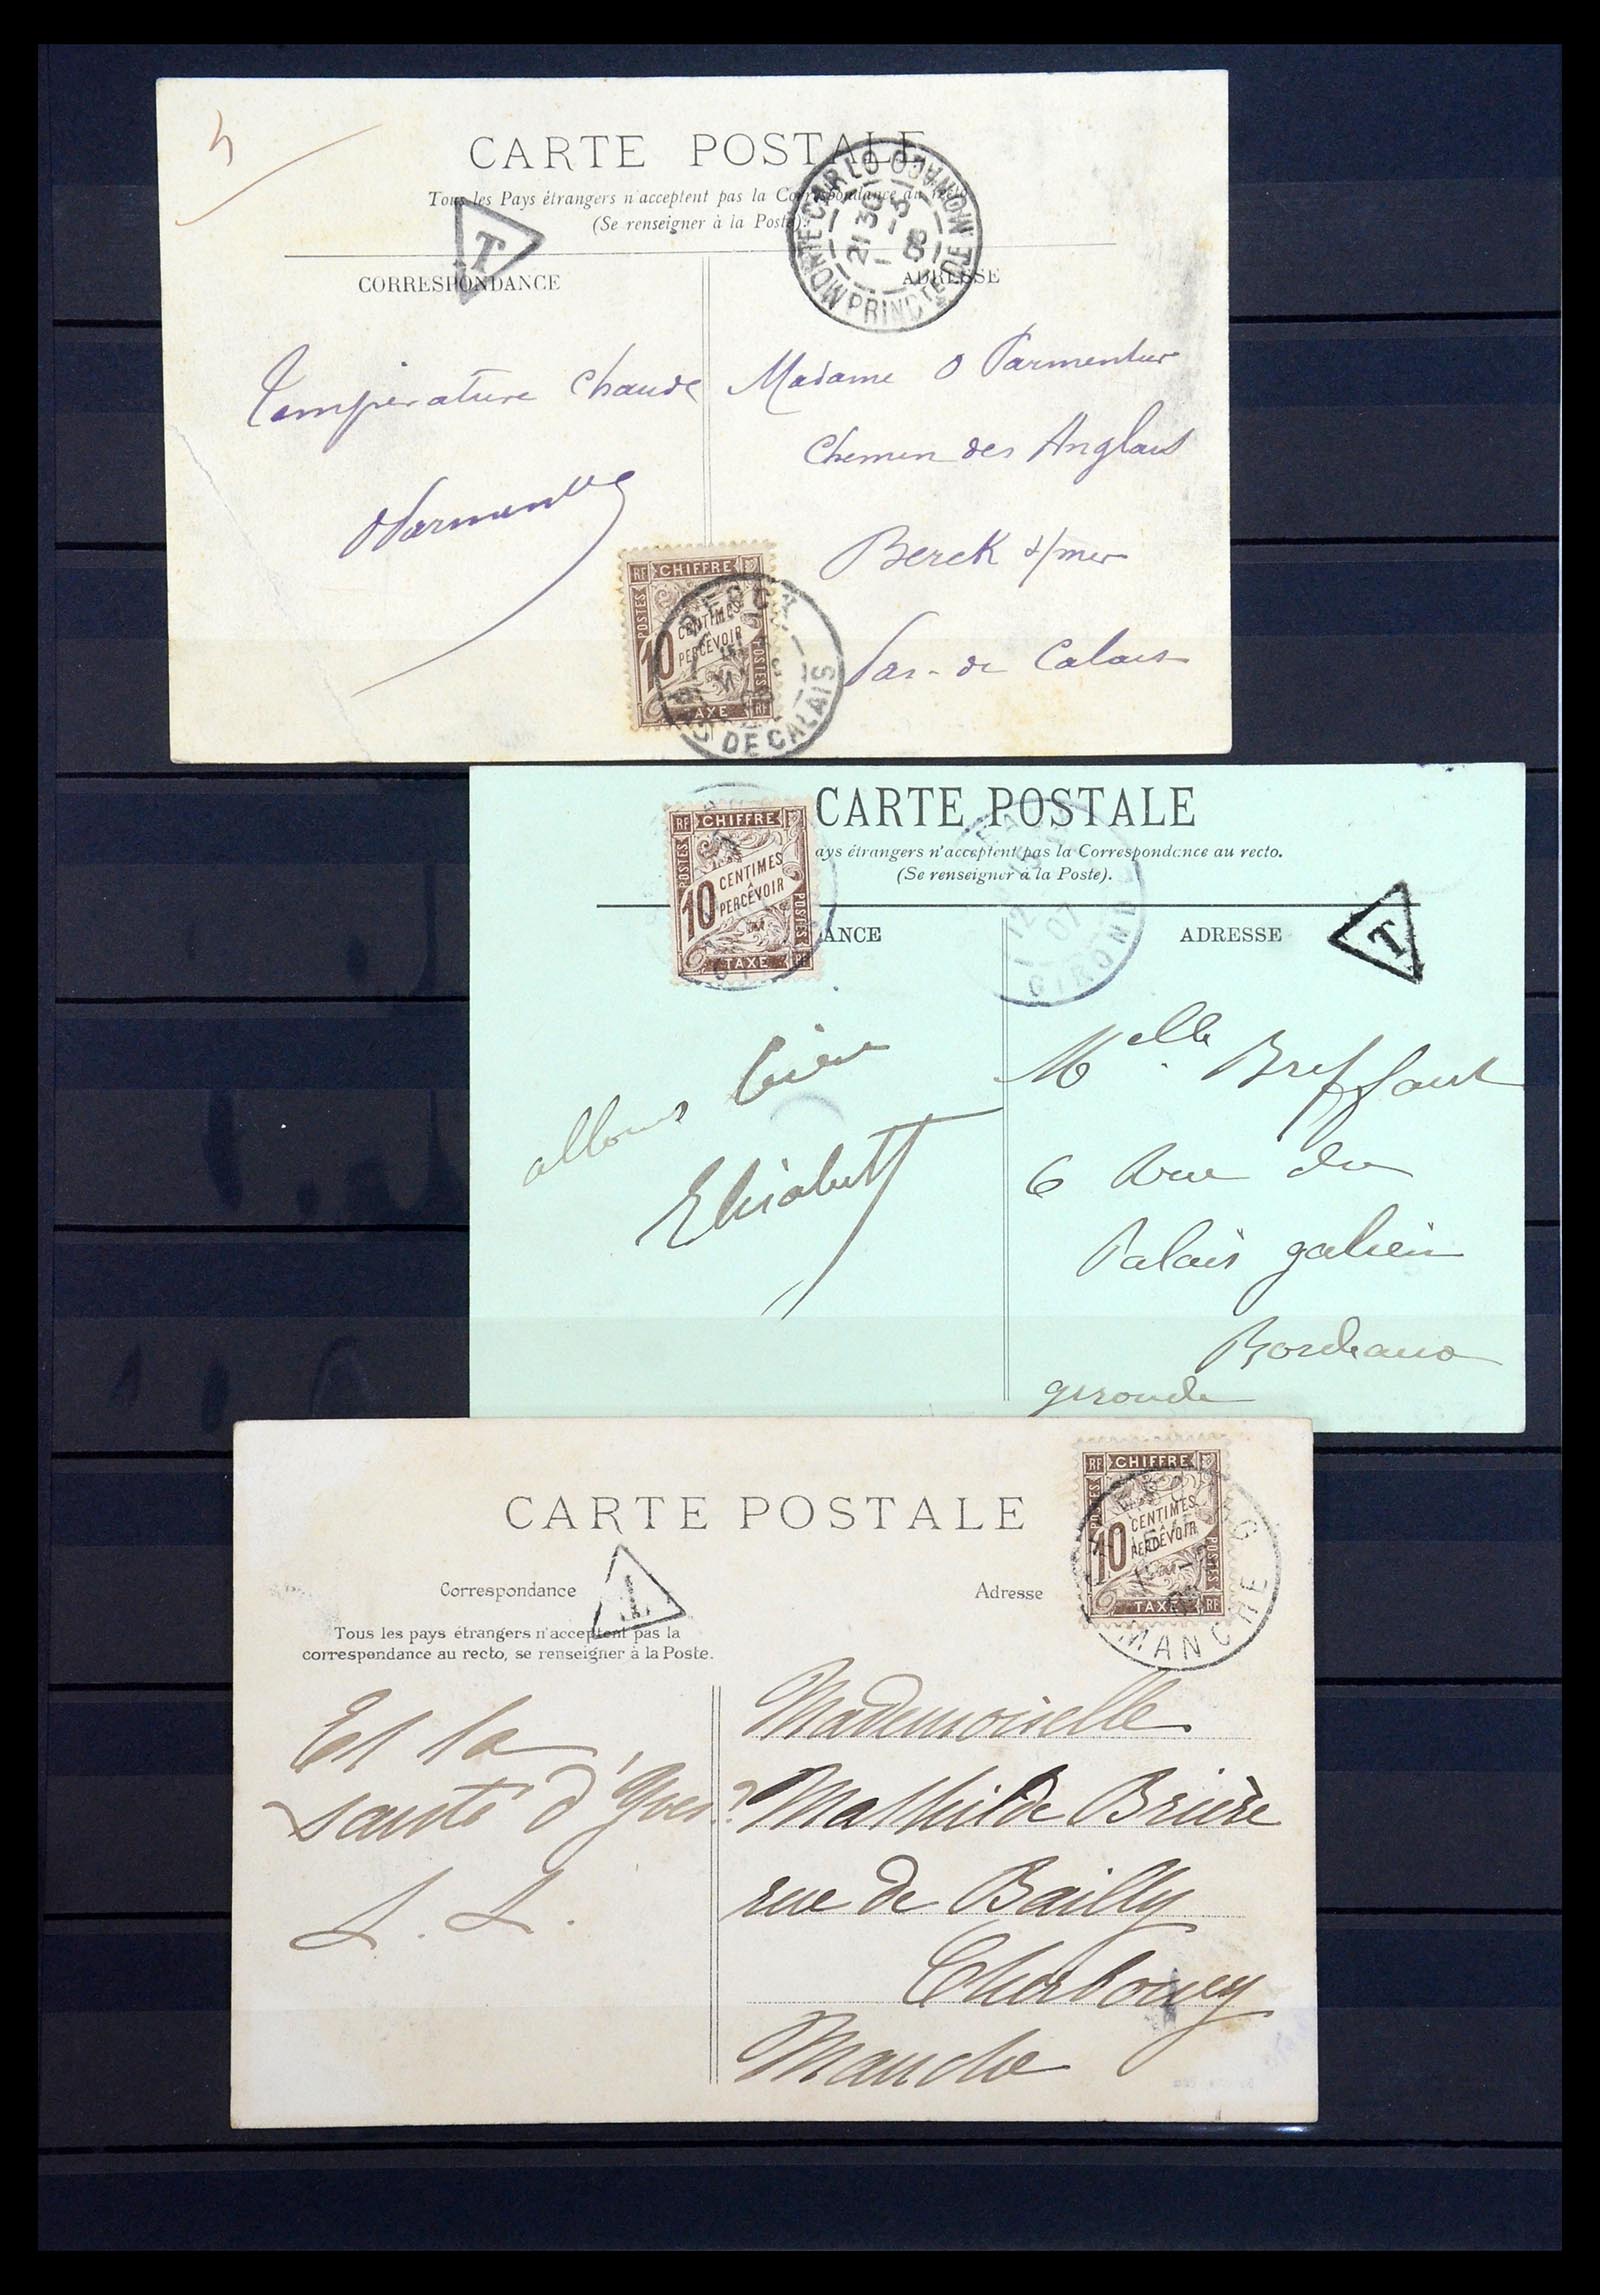 CARTE POSTALE
Tous les Pays étrangers n'acceptent pas la Correspondance au recto
(Se renseigner à la Poste).
T
MONTE CARLO
PRINCTE DE MONACO
21 30
CORRESPONDANCE
ADRESSE
Température chaude
Madame O Parmentier
Chemin des Anglais
Berck s/mer
Pas-de Calais
OParmentier
RF CHIFFRE
POSTES
10 CENTIMES
A
PERCEVOIR
POSTES
TAXE RF
DE CALAIS
CARTE POSTALE
ays étrangers n'acceptent pas la Correspondance au recto.
(Se renseigner à la Poste).
ANCE
ADRESSE
T
RF CHIFFRE
POSTES
10 CENTIMES
A
PERCEVOIR
POSTES
TAXE RF
12
07
GIRONDE
allons bien
Elisabeth
Melle Breffaut
6 Rue du
Palais galien
Bordeaux
gironde
CARTE POSTALE
Correspondance
T
Adresse
Tous les pays étrangers n'acceptent pas la
correspondance au recto, se renseigner à la Poste.
RF CHIFFRE
POSTES
10 CENTIMES
A
PERCEVOIR
POSTES
TAXE RF
MANCHE
Et la
santé d'Yves?
L. L.
Mademoiselle
Mathilde Brière
rue de Bailly
Cherbourg
Manche